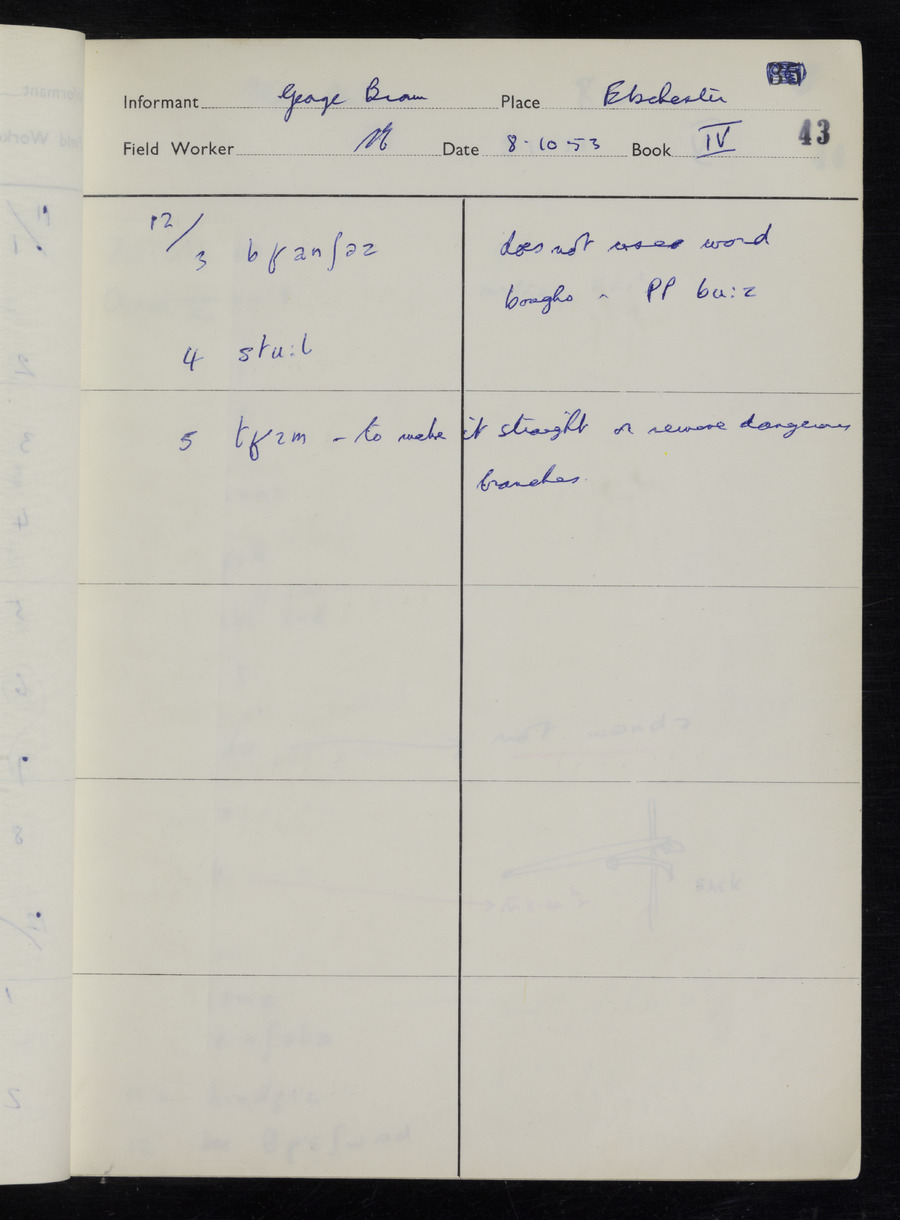 Informant George Brown Place Ebchester
Field Worker Date 8-10-53 Book IV 43
12/
3 bɾanʃəz does not use word
boughs - PP bu:z
4 stu:l
5 tɾim - to make it straight or remove dangerous
branches.